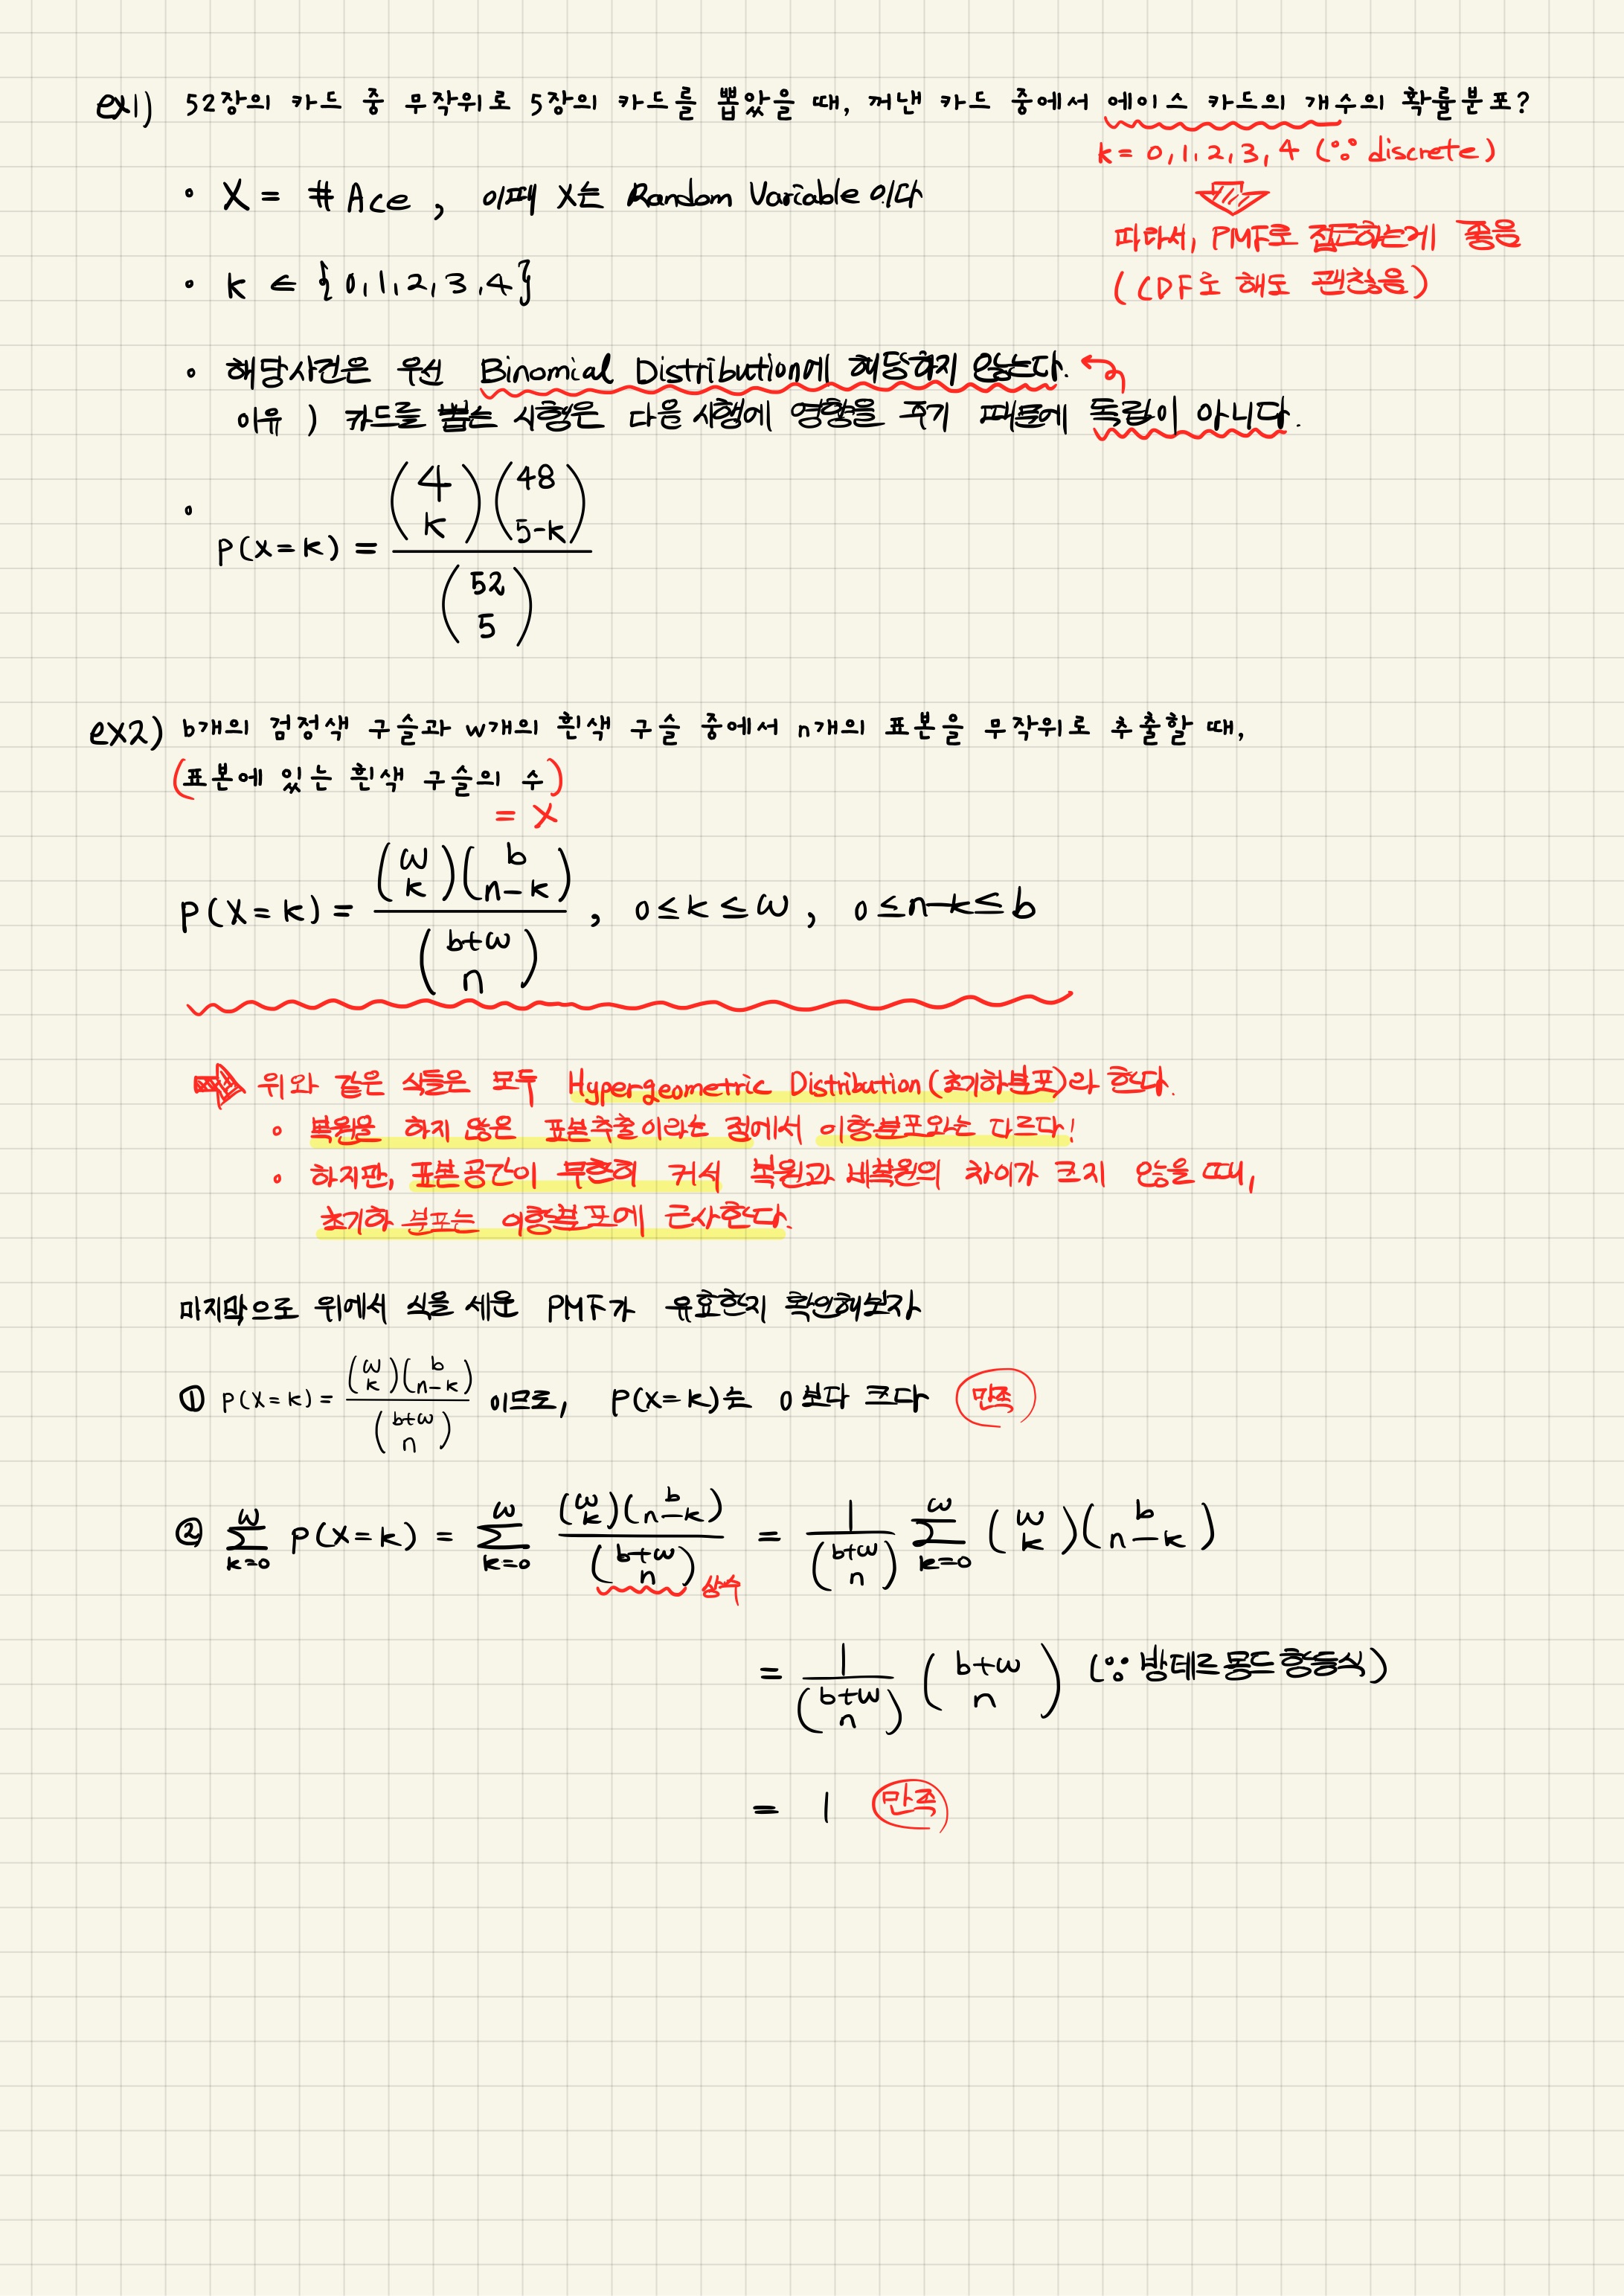 ex1) 52장의 카드 중 무작위로 5장의 카드를 뽑았을 때, 꺼낸 카드 중에서 에이스 카드의 개수의 확률분포?
k = 0, 1, 2, 3, 4 (∵ discrete)
• X = # Ace , 이때 X는 Random Variable 이다
따라서, PMF로 접근하는게 좋음
• k ∈ {0, 1, 2, 3, 4}
(CDF로 해도 괜찮음)
• 해당사건은 우선 Binomial Distribution에 해당하지 않는다.
이유 ) 카드를 뽑는 시행은 다음 시행에 영향을 주기 때문에 독립이 아니다.
• P(X=k) = \frac{\binom{4}{k}\binom{48}{5-k}}{\binom{52}{5}}
ex2) b개의 검정색 구슬과 w개의 흰색 구슬 중에서 n개의 표본을 무작위로 추출할 때,
(표본에 있는 흰색 구슬의 수)
= X
P(X=k) = \frac{\binom{w}{k}\binom{b}{n-k}}{\binom{b+w}{n}} , 0≤k≤w , 0≤n-k≤b
⇒ 위와 같은 식들은 모두 Hypergeometric Distribution (초기하분포)라 한다.
• 복원을 하지 않은 표본추출이라는 점에서 이항분포와는 다르다!
• 하지만, 표본공간이 무한히 커서 복원과 비복원의 차이가 크지 않을 때,
초기하 분포는 이항분포에 근사한다.
마지막으로 위에서 식을 세운 PMF가 유효한지 확인해보자
① P(X=k) = \frac{\binom{w}{k}\binom{b}{n-k}}{\binom{b+w}{n}} 이므로, P(X=k)는 0보다 크다 만족
② \sum_{k=0}^{w} P(X=k) = \sum_{k=0}^{w} \frac{\binom{w}{k}\binom{b}{n-k}}{\binom{b+w}{n}} = \frac{1}{\binom{b+w}{n}} \sum_{k=0}^{w} \binom{w}{k}\binom{b}{n-k}
상수
= \frac{1}{\binom{b+w}{n}} \binom{b+w}{n} (∵ 방데르몽드 항등식)
= 1 만족